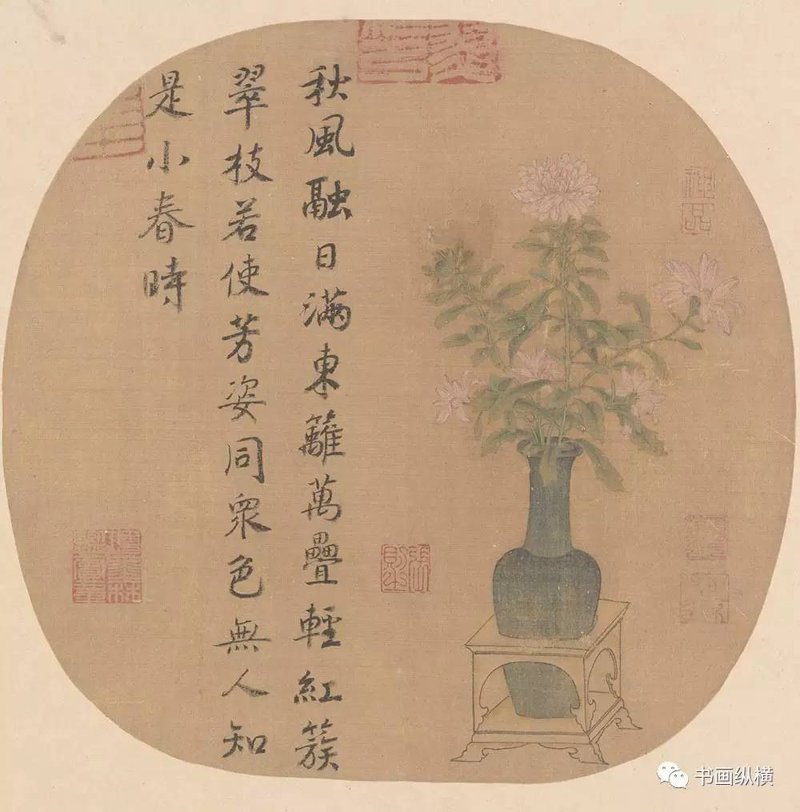 秋風融日滿東籬萬疊輕紅簇
翠枝若使芳姿同衆色無人知
是小春時
书画纵横